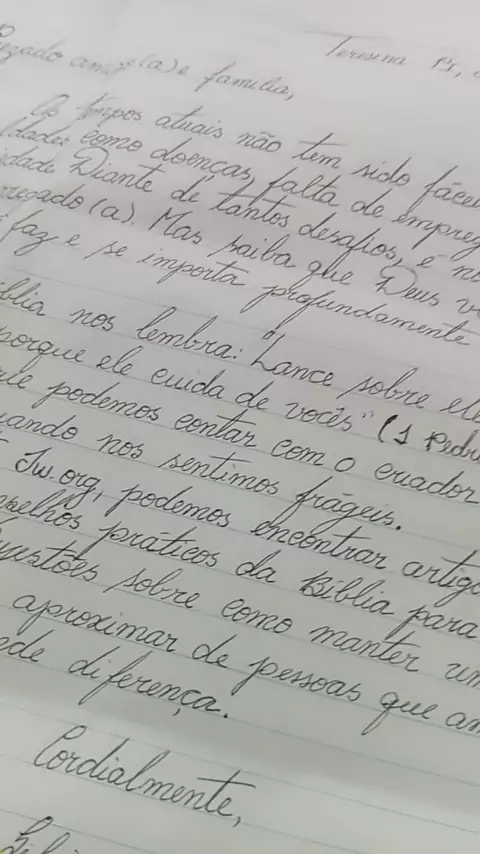 Teresina PI,
Prezado amigo(a) e família,
Os tempos atuais não tem sido fáceis
como doenças, falta de empreg
idade. Diante de tantos desafios, é no
rregado(a). Mas saiba que Deus v
faz e se importa profundamente
blia nos lembra: "Lance sobre ele
porque ele cuida de vocês" (1 Pedr
ele podemos contar com o criador
uando nos sentimos frágeis.
Jw.org, podemos encontrar artigo
selhos práticos da Bíblia para
gestões sobre como manter um
aproximar de pessoas que am
nde diferença.
Cordialmente,